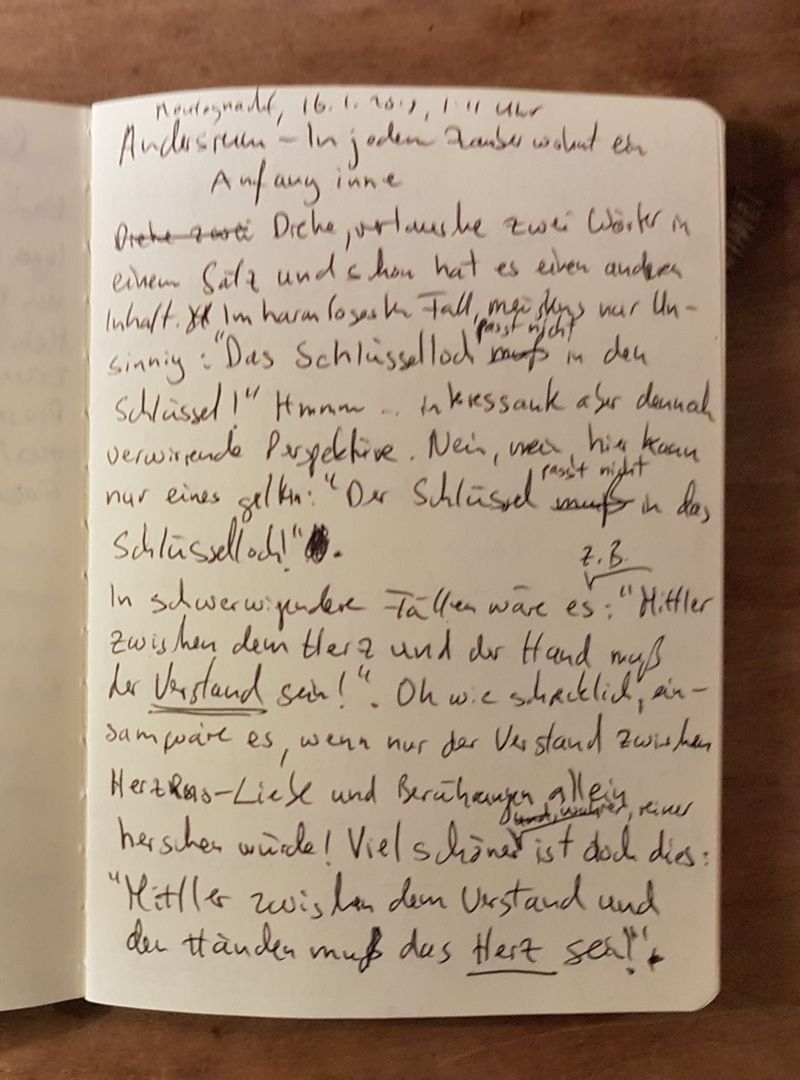 Montagnacht, 16.1.2017, 1:11 Uhr
Andersrum – In jedem Zauber wohnt ein
Anfang inne
Drehe zwei Drehe, vertausche zwei Wörter in
einem Satz und schon hat es einen anderen
Inhalt. Im harmlosesten Fall, meistens nur Un-
sinnig: "Das Schlüsselloch muß passt nicht in den
Schlüssel!" Hmmm ... interessante aber dennoch
verwirrende Perspektive. Nein, nein, hier kann
nur eines gelten: "Der Schlüssel muß passt nicht in das
Schlüsselloch!".
In schwerwigendere Fällen wäre es z.B.: "Mittler
zwischen dem Herz und der Hand muß
der Verstand sein!". Oh wie schrecklich, ein-
sam wäre es, wenn nur der Verstand zwischen
Herz-Liebe und Berührungen allein
herschen würde! Viel schöner und, wahrer, reiner ist doch dies:
"Mittler zwischen dem Verstand und
den Händen muß das Herz sein!".